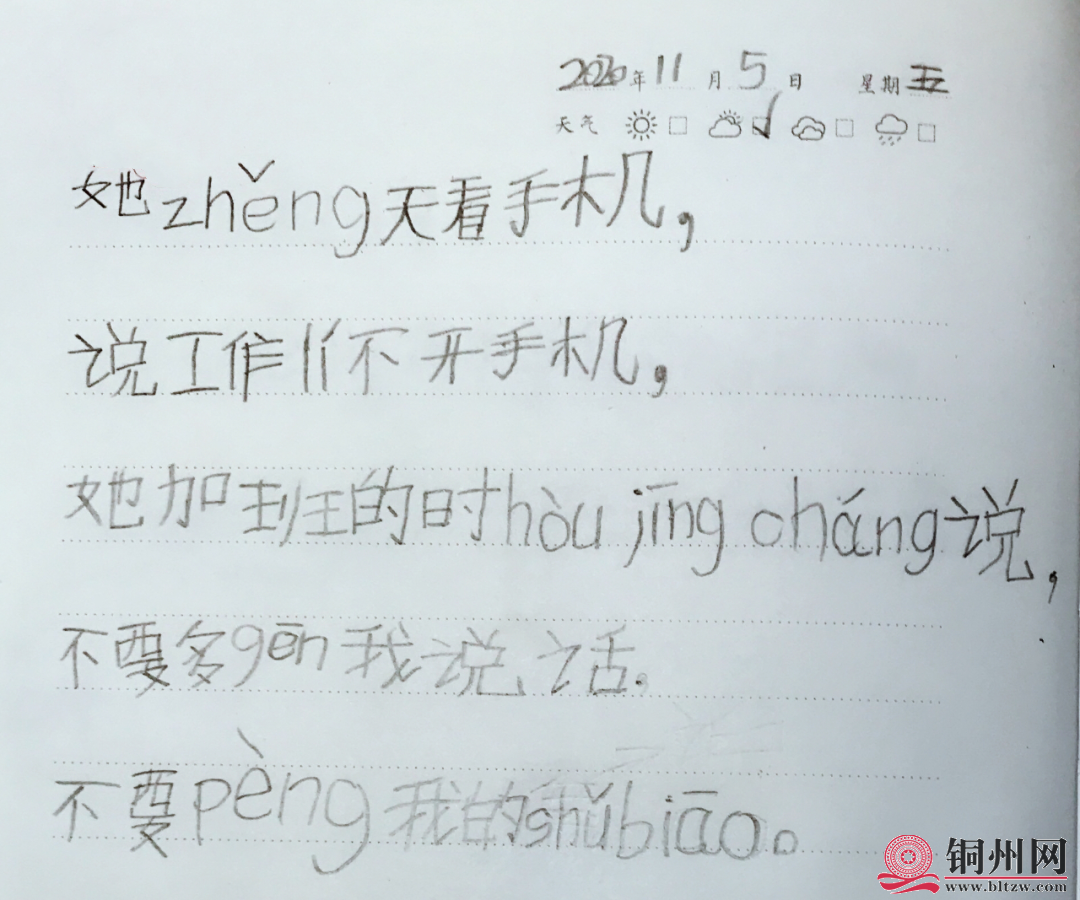 2020年11月5日 星期五
天气
她zhěng天看手机，
说工作lí不开手机，
她加班的时hòu jīng cháng说，
不要多gēn我说话。
不要pèng我的shǔbiāo。
铜州网
www.bltzw.com